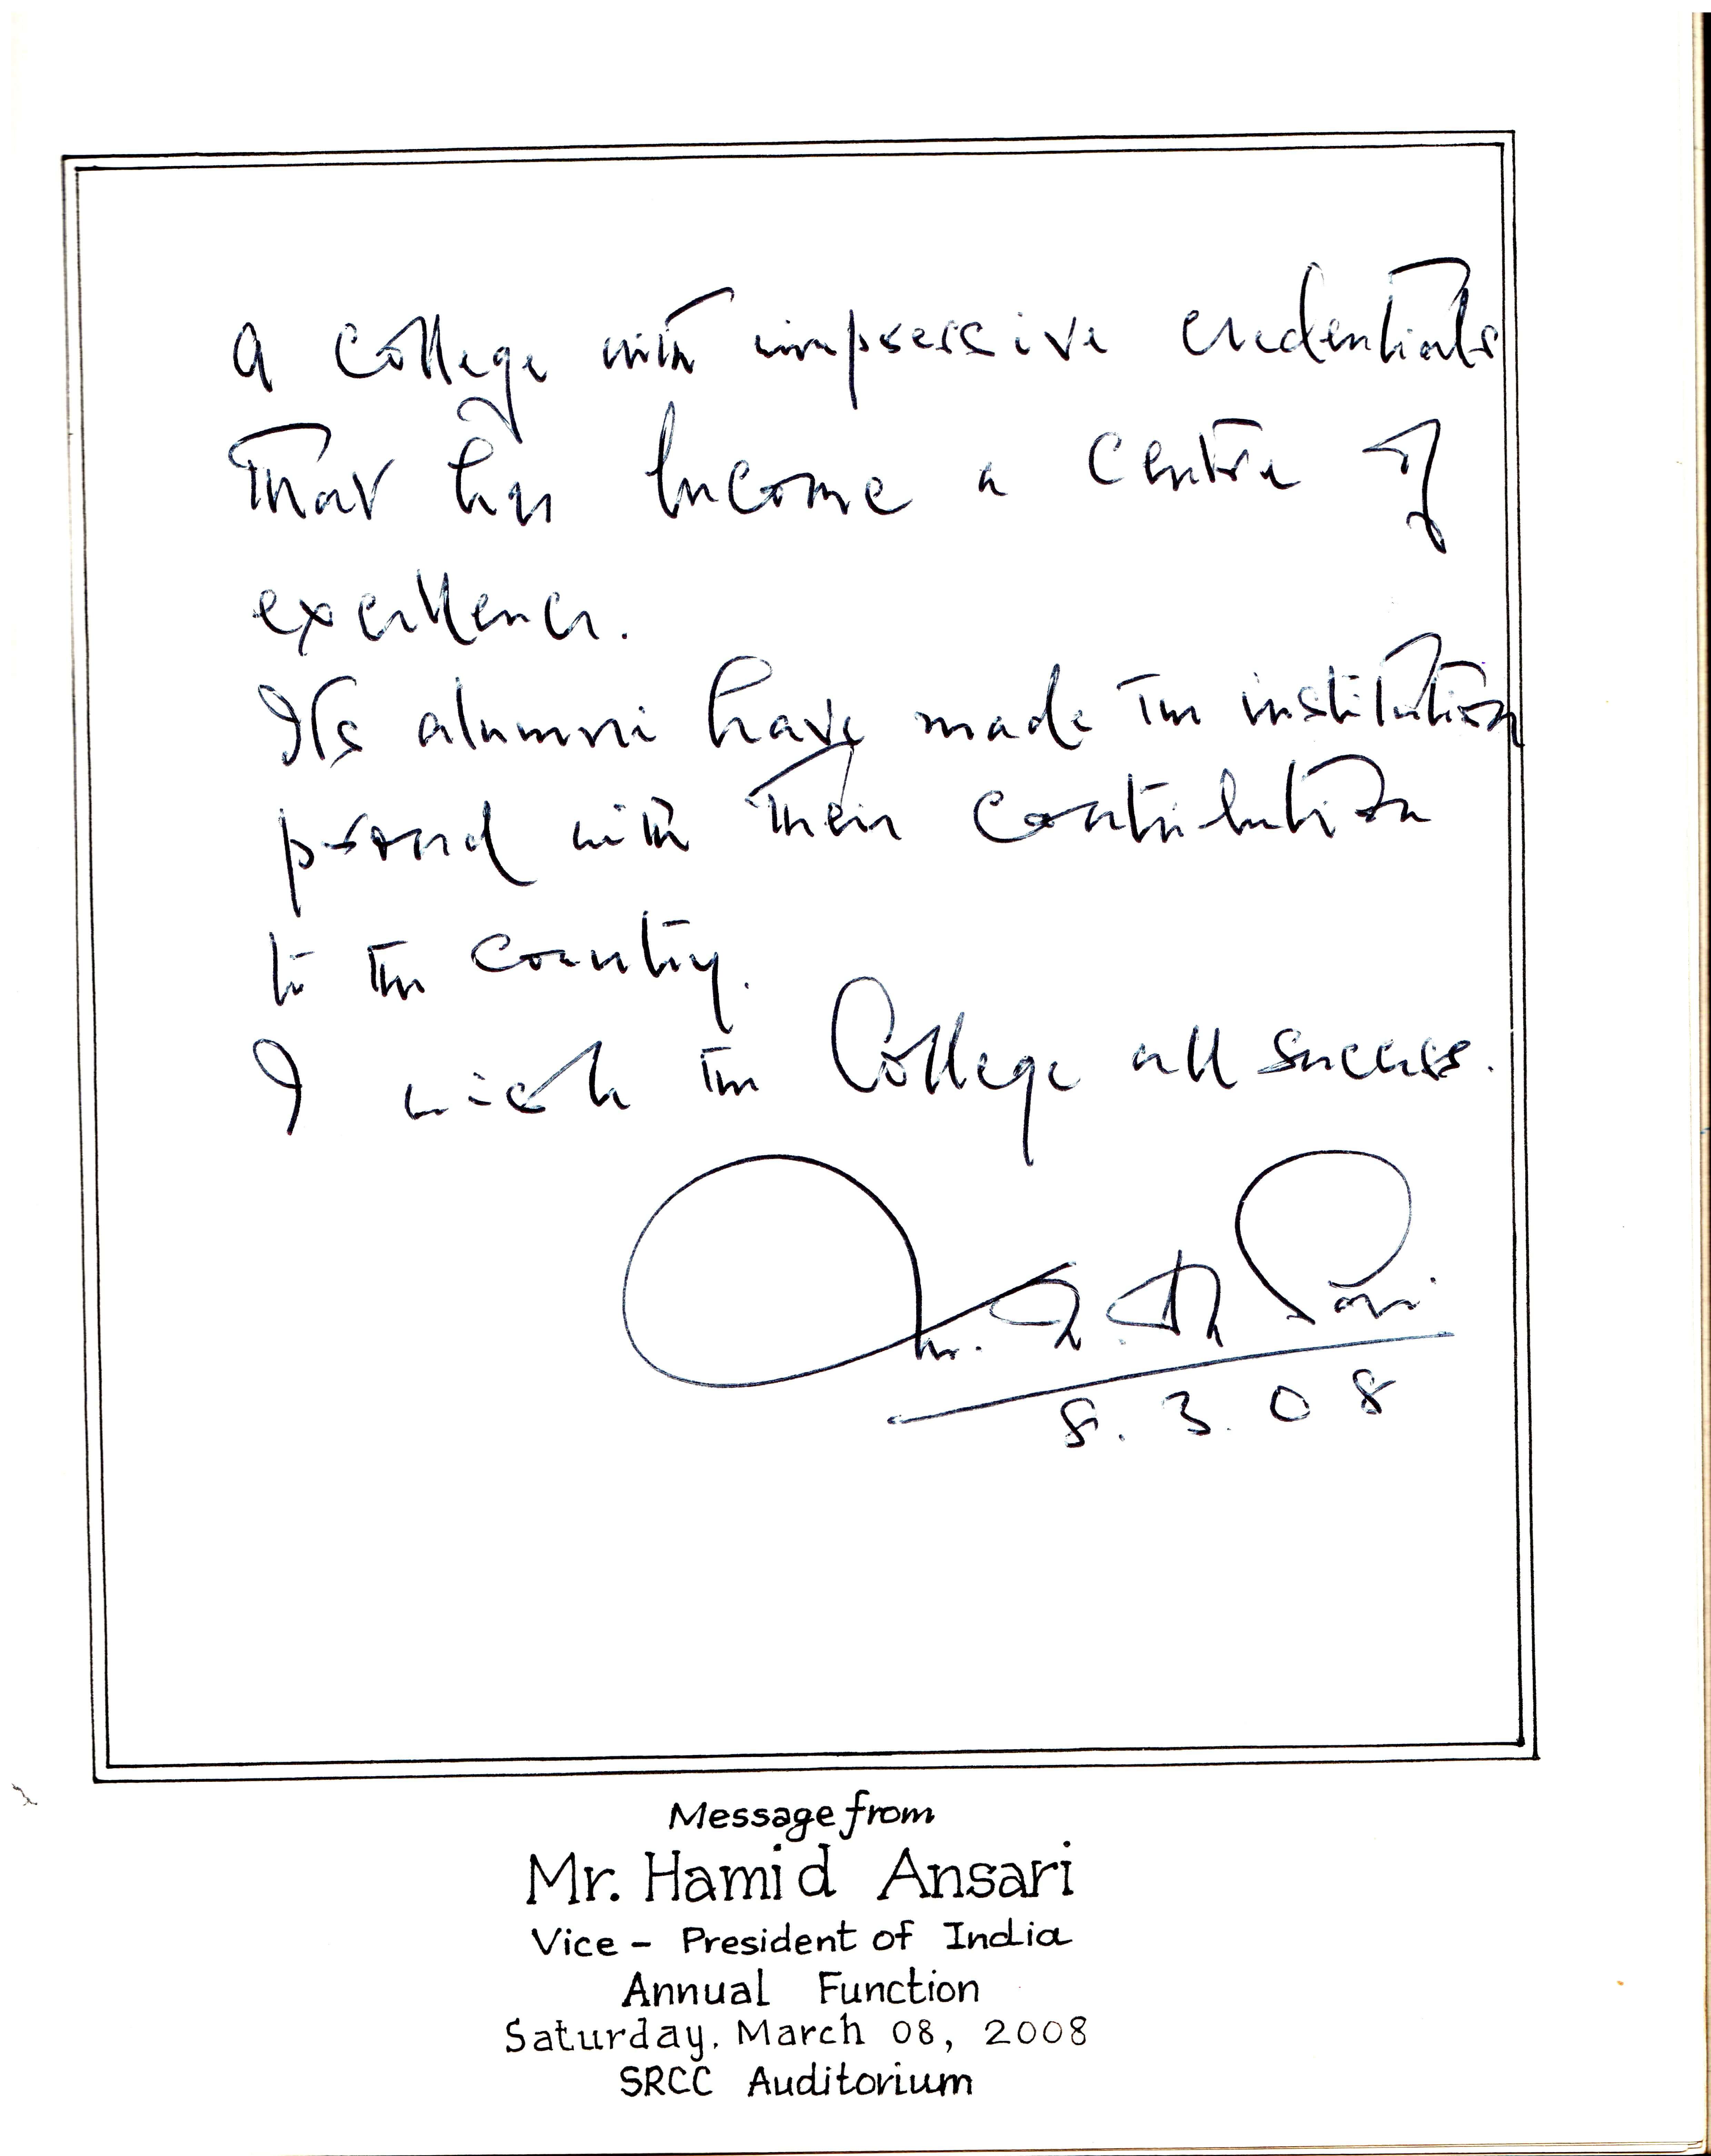 A college with impressive credentials
that has become a centre of
excellence.
Its alumni have made the institution
proud with their contribution
to the country.
I wish the College all success.
8.3.08
Message from
Mr. Hamid Ansari
Vice - President of India
Annual Function
Saturday, March 08, 2008
SRCC Auditorium